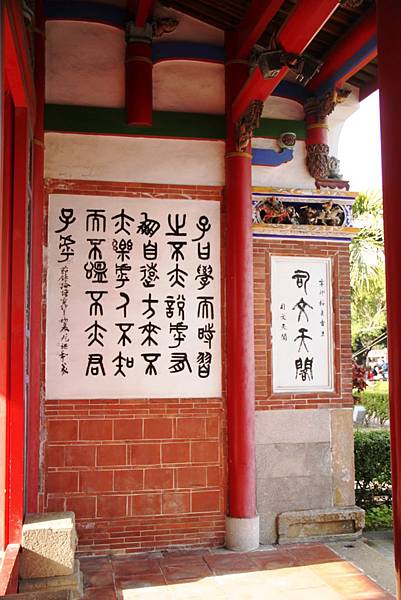 子曰學而時習
之不亦說乎有
朋自遠方來不
亦樂乎人不知
而不慍不亦君
子乎
司文天閣
司文天閣